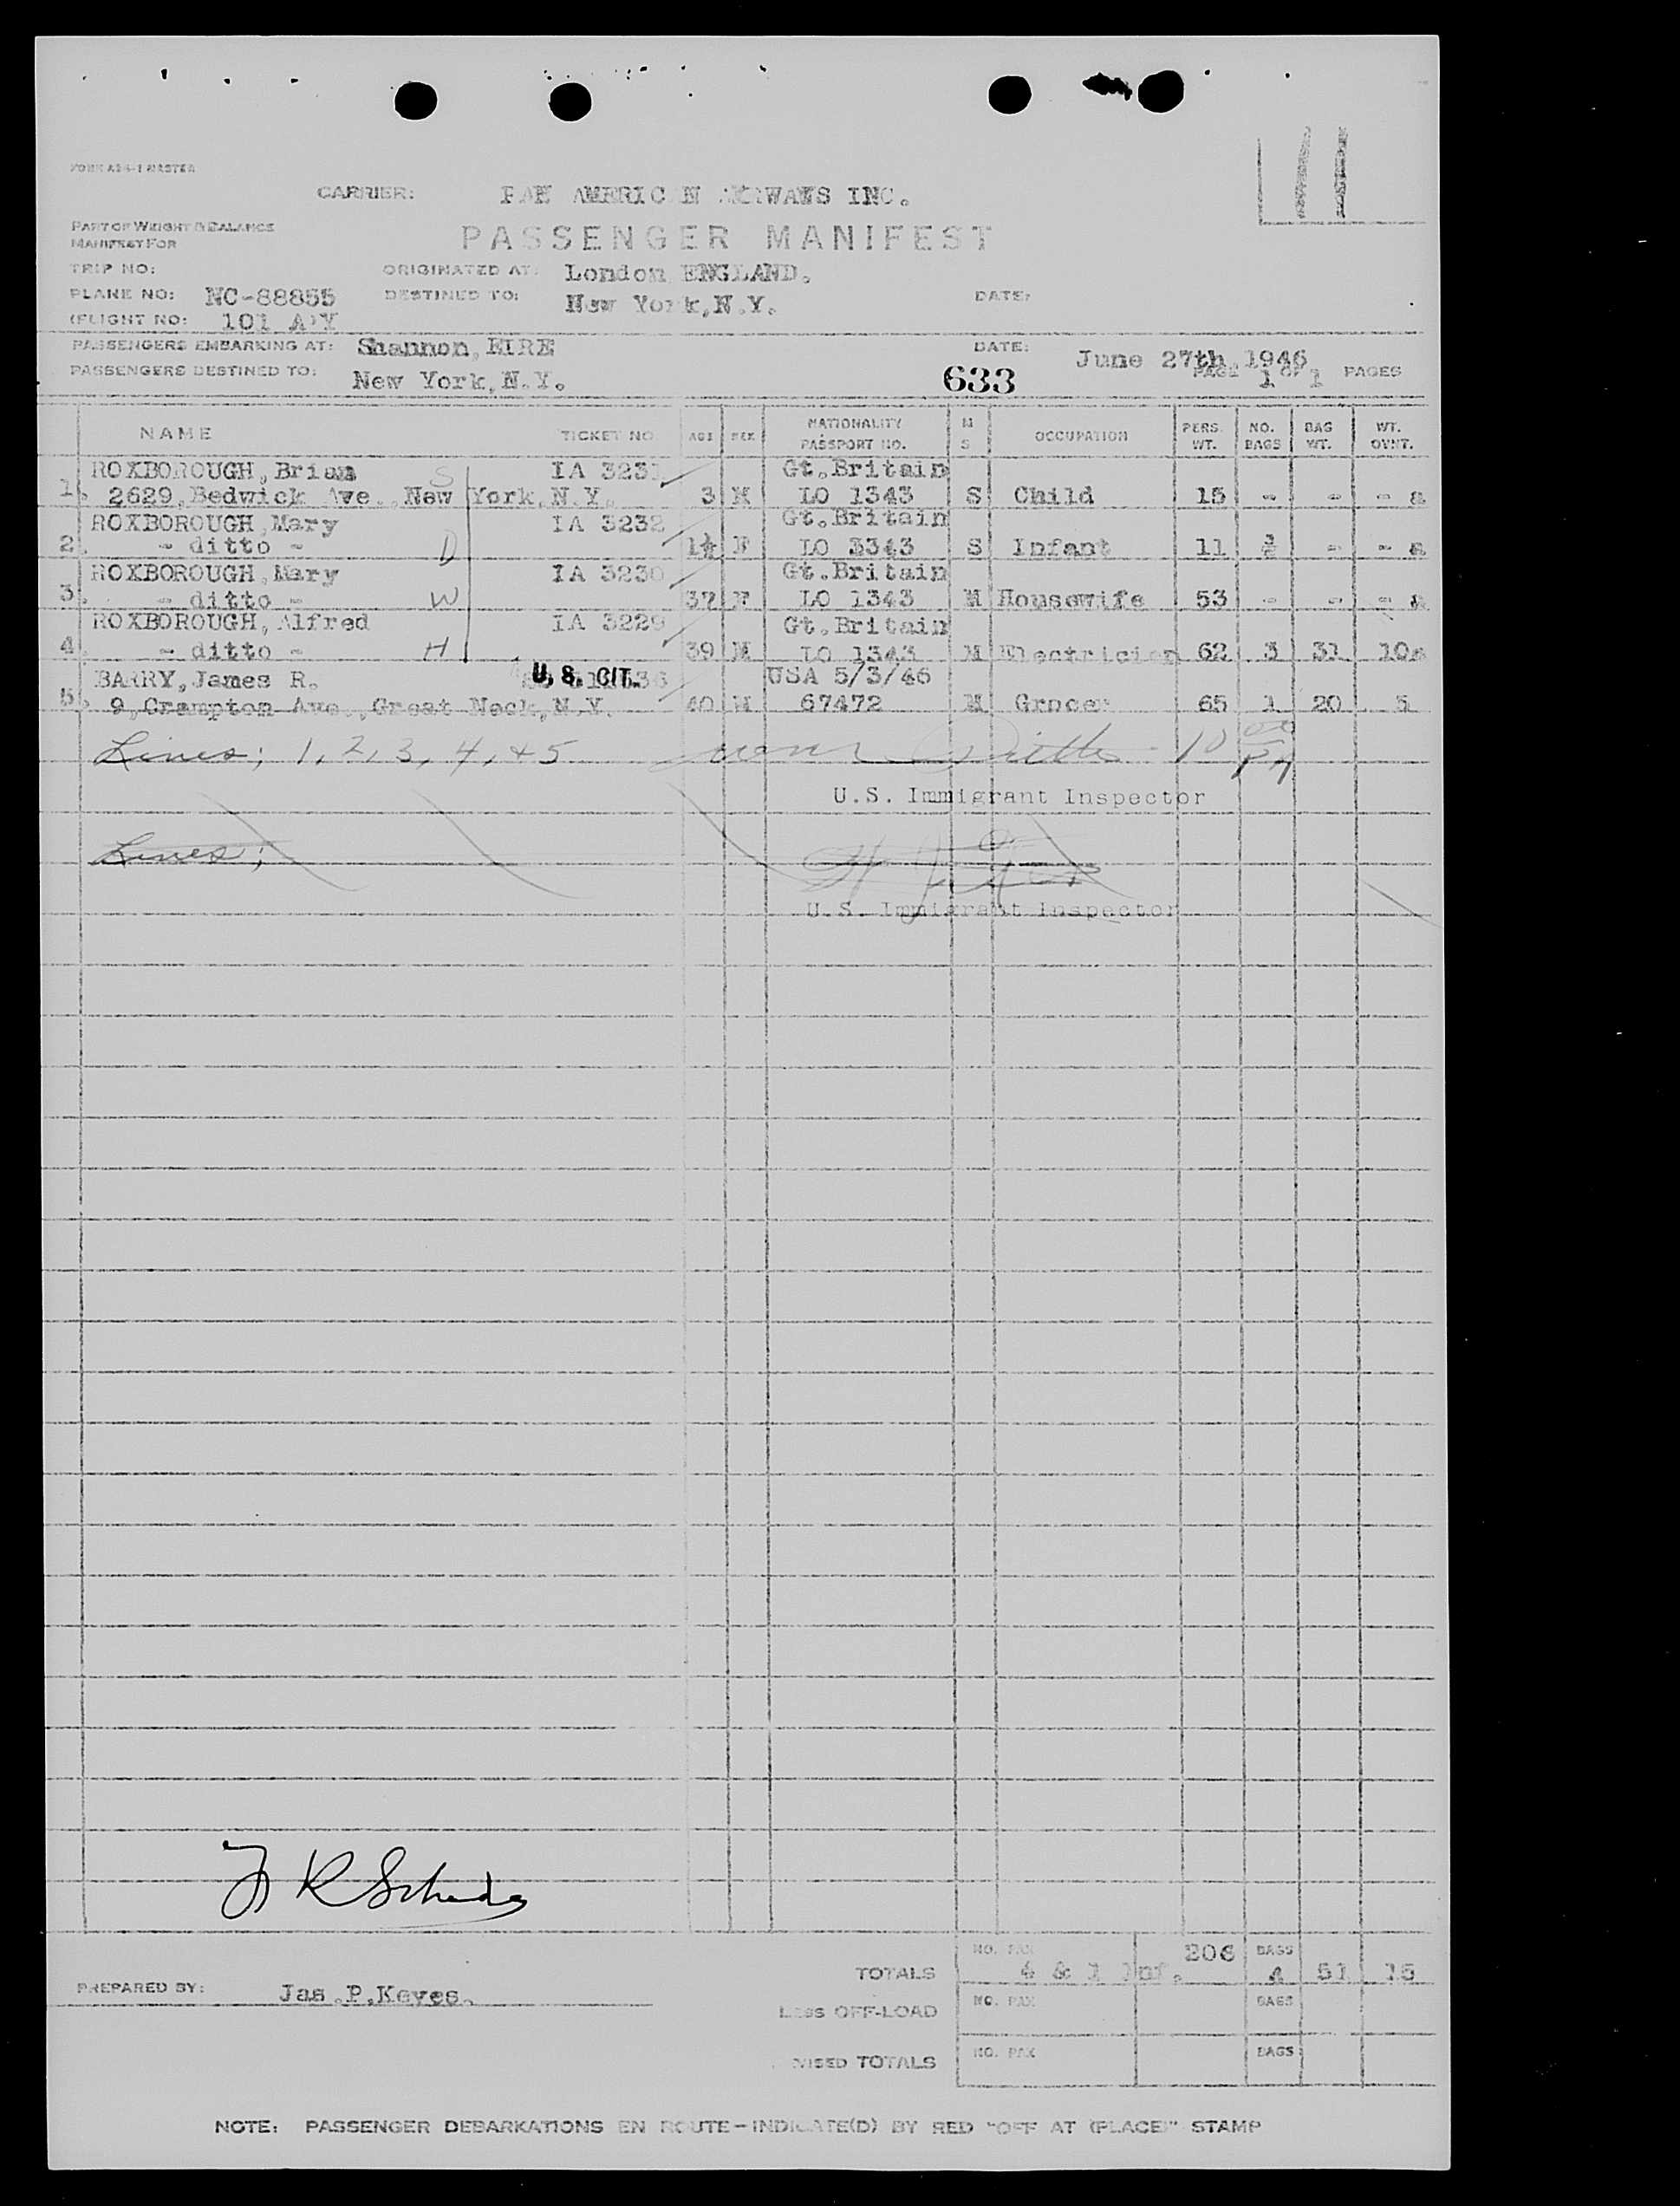 FORM AB4-1 MASTER
CARRIER: PAN AMERICAN AIRWAYS INC.
PART OF WEIGHT & BALANCE
MANIFEST FOR
PASSENGER MANIFEST
TRIP NO: ORIGINATED AT: London ENGLAND.
PLANE NO: NC-88855 DESTINED TO: New York, N.Y. DATE:
(FLIGHT NO: 101 A)Y
PASSENGERS EMBARKING AT: Shannon, EIRE DATE: June 27th 1946
PASSENGERS DESTINED TO: New York, N.Y. 633 PAGE 1 OF 1 PAGES
NAME TICKET NO. AGE SEX NATIONALITY PASSPORT NO. M S OCCUPATION PERS. WT. NO. BAGS BAG WT. WT. OVWT.
ROXBOROUGH, Brian S IA 3231 Gt.Britain
1. 2629, Bedwick Ave., New York, N.Y. 3 M LO 1343 S Child 15 - - -
ROXBOROUGH, Mary IA 3232 Gt.Britain
2. - ditto - D 1½ F LO 3343 S Infant 11 - -
ROXBOROUGH, Mary IA 3230 Gt.Britain
3. - ditto - W 37 F LO 1343 M Housewife 53 - - -
ROXBOROUGH, Alfred IA 3229 Gt.Britain
4. - ditto - H 39 M LO 1343 M Electrician 62 3 31 10
BARRY, James R. U.S. CIT. USA 5/3/46
5. 9, Crampton Ave., Great Neck, N.Y. 40 M 67472 M Grocer 65 1 20 5
Lines; 1, 2, 3, 4, & 5
U.S. Immigrant Inspector
Lines;
U.S. Immigrant Inspector
NO. PAX 206 BAGS
TOTALS 4 & 1 Inf. 4 51 15
PREPARED BY: Jas. P. Keyes.
Less OFF-LOAD NO. PAX BAGS
VISED TOTALS NO. PAX BAGS
NOTE: PASSENGER DEBARKATIONS EN ROUTE - INDICATE(D) BY RED "OFF AT (PLACE)" STAMP